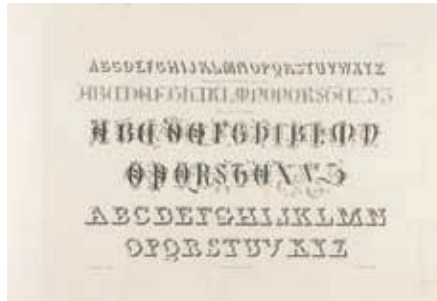 ABCDEFGHIJKLMNOPQRSTUVWXYZ
ABCDEFGHIKLMNOPQRSTU
ABCDEFGHIKLMN
OPQRSTUXYZ
ABCDEFGHIJKLMN
OPQRSTUVXYZ